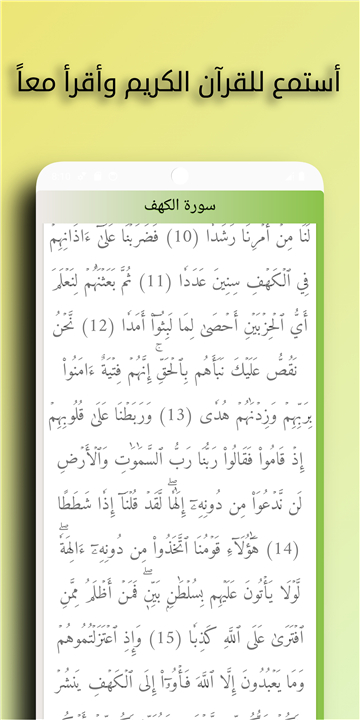 أستمع للقرآن الكريم وأقرأ معاً
سورة الكهف
لَنَا مِنۡ أَمۡرِنَا رَشَدٗا (10) فَضَرَبۡنَا عَلَىٰٓ ءَاذَانِهِمۡ
فِي ٱلۡكَهۡفِ سِنِينَ عَدَدٗا (11) ثُمَّ بَعَثۡنَٰهُمۡ لِنَعۡلَمَ
أَيُّ ٱلۡحِزۡبَيۡنِ أَحۡصَىٰ لِمَا لَبِثُوٓاْ أَمَدٗا (12) نَّحۡنُ
نَقُصُّ عَلَيۡكَ نَبَأَهُم بِٱلۡحَقِّۚ إِنَّهُمۡ فِتۡيَةٌ ءَامَنُواْ
بِرَبِّهِمۡ وَزِدۡنَٰهُمۡ هُدٗى (13) وَرَبَطۡنَا عَلَىٰ قُلُوبِهِمۡ
إِذۡ قَامُواْ فَقَالُواْ رَبُّنَا رَبُّ ٱلسَّمَٰوَٰتِ وَٱلۡأَرۡضِ
لَن نَّدۡعُوَاْ مِن دُونِهِۦٓ إِلَٰهٗاۖ لَّقَدۡ قُلۡنَآ إِذٗا شَطَطًا
(14) هَٰٓؤُلَآءِ قَوۡمُنَا ٱتَّخَذُواْ مِن دُونِهِۦٓ ءَالِهَةٗۖ
لَّوۡلَا يَأۡتُونَ عَلَيۡهِم بِسُلۡطَٰنِۭ بَيِّنٖۖ فَمَنۡ أَظۡلَمُ مِمَّنِ
ٱفۡتَرَىٰ عَلَى ٱللَّهِ كَذِبٗا (15) وَإِذِ ٱعۡتَزَلۡتُمُوهُمۡ
وَمَا يَعۡبُدُونَ إِلَّا ٱللَّهَ فَأۡوُۥٓاْ إِلَى ٱلۡكَهۡفِ يَنشُرۡ